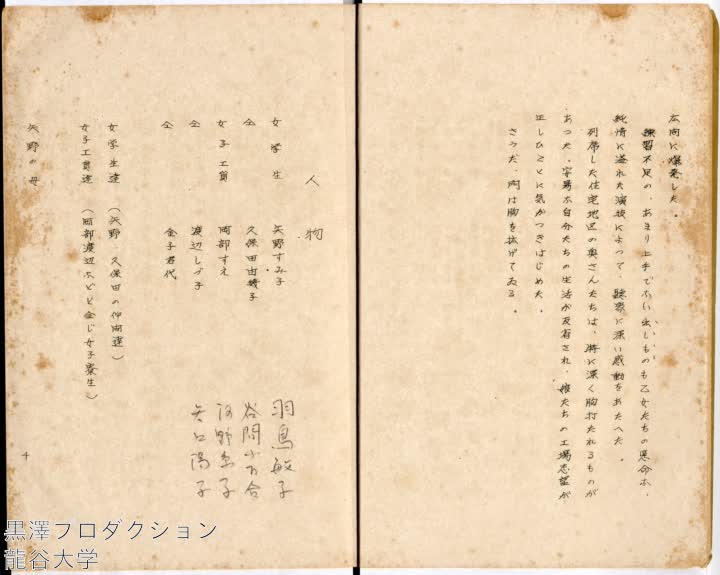 広間に爆発した。
練習不足の、あまり上手でない出しものも乙女たちの懸命な、
純情に溢れた演技によって、聴衆に深い感動をあたへた。
列席した住宅地区の奥さんたちは、特に深く胸打たれるものが
あつた。安易な自分たちの生活が反省され、娘たちの工場志望が
正しひことに気がつきはじめた。
さうだ、
は胸を拡げてゐる。
人物
女学生 矢野すみ子
仝 久保田由績子 羽鳥敏子
女子工員 岡部すえ 谷間小百合
仝 渡辺しづ子 河野糸子
仝 金子君代 矢口陽子
女学生達（矢野、久保田の仲間達）
女子工員達（岡部渡辺などと仝じ女子寮生）
矢野の母
4
黒澤プロダクション
龍谷大学